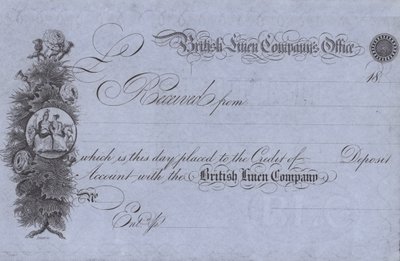 British Linen Company's Office
£ 18
Received from
which is this day placed to the Credit of Deposit
Account with the British Linen Company
No
Entd.